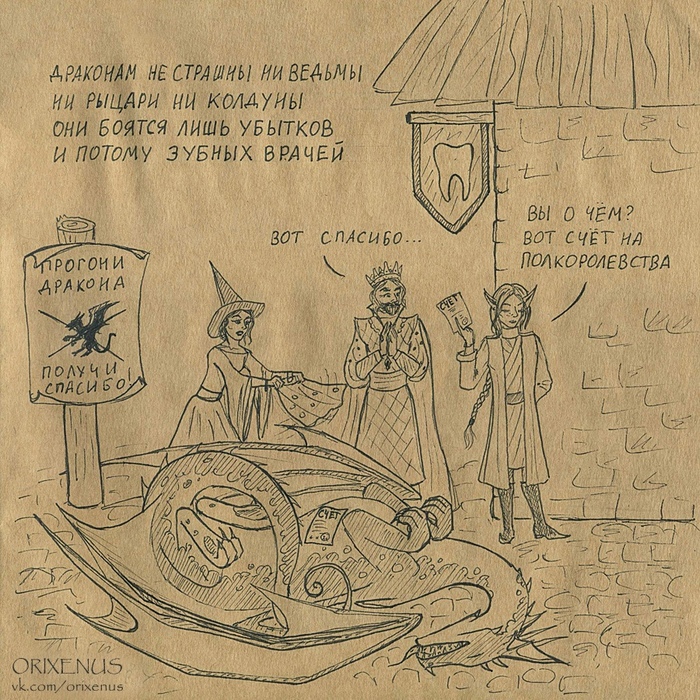 ДРАКОНАМ НЕ СТРАШНЫ НИ ВЕДЬМЫ
НИ РЫЦАРИ НИ КОЛДУНЫ
ОНИ БОЯТСЯ ЛИШЬ УБЫТКОВ
И ПОТОМУ ЗУБНЫХ ВРАЧЕЙ
ВОТ СПАСИБО...
ВЫ О ЧЁМ?
ВОТ СЧЁТ НА
ПОЛКОРОЛЕВСТВА
ПРОГОНИ
ДРАКОНА
ПОЛУЧИ
СПАСИБО!
СЧЕТ
СЧЕТ
ORIXENUS
vk.com/orixenus